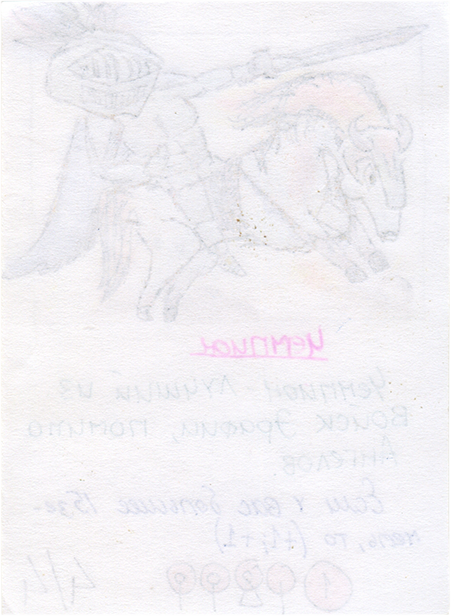 Чемпион
Чемпион - лучший из
Войск Эрафии, помимо
Ангелов.
Если у вас больше 15 зе-
мель, то (+1;+1)
4/4